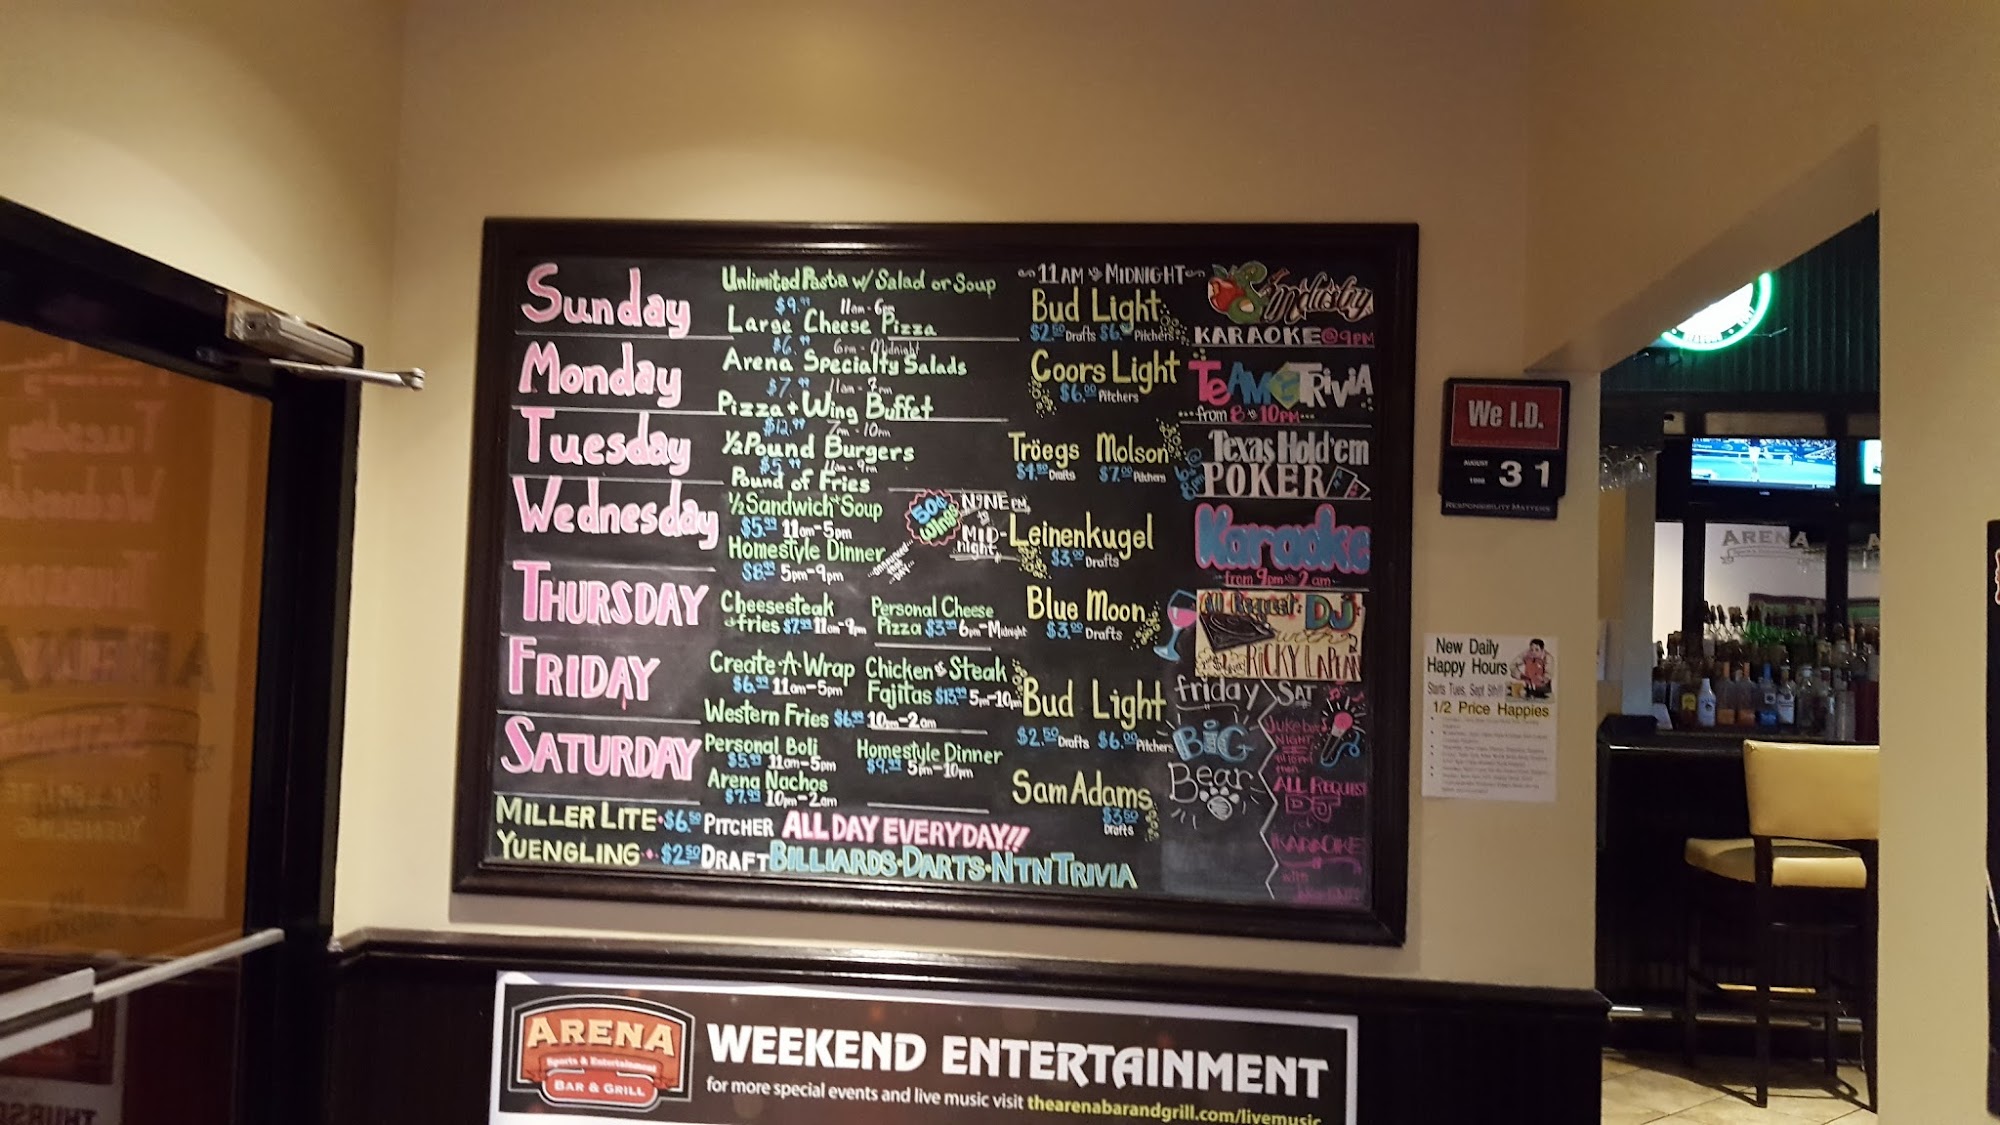 Sunday
Unlimited Pasta w/ Salad or Soup
$9.99 11am-6pm
Large Cheese Pizza
$6.99 6pm-Midnight
11AM to MIDNIGHT
Bud Light
$2.50 Drafts $6.00 Pitchers
Industry
KARAOKE @9PM
Monday
Arena Specialty Salads
$7.99 11am-7pm
Pizza + Wing Buffet
$12.99 7pm-10pm
Coors Light
$6.00 Pitchers
TEAM TRIVIA
from 8 to 10PM
Tuesday
1/2 Pound Burgers
$5.99 11am-9pm
Pound of Fries
Tröegs Molson
$4.50 Drafts $7.00 Pitchers
Texas Hold'em
POKER
Wednesday
1/2 Sandwich + Soup
$5.99 11am-5pm
Homestyle Dinner
$8.99 5pm-9pm
50¢ Wings
NINE PM
to
MID-
night
...announced that DAY...
Leinenkugel
$3.00 Drafts
Karaoke
from 9pm to 2am
THURSDAY
Cheesesteak
+fries $7.99 11am-9pm
Personal Cheese
Pizza $3.99 6pm-Midnight
Blue Moon
$3.00 Drafts
All Request DJ
with
RICKY LAPEAN
FRIDAY
Create-A-Wrap
$6.99 11am-5pm
Chicken & Steak
Fajitas $13.99 5pm-10pm
Western Fries $6.99 10pm-2am
Bud Light
$2.50 Drafts $6.00 Pitchers
friday
BIG
Bear
SAT
Jukebox
NIGHT
till 10PM
then
ALL REQUEST
DJ
KARAOKE
with
SATURDAY
Personal Boli
$5.99 11am-5pm
Homestyle Dinner
$9.99 5pm-10pm
Arena Nachos
$7.99 10pm-2am
Sam Adams
$3.50
Drafts
MILLER LITE · $6.50 PITCHER ALL DAY EVERYDAY!!
YUENGLING · $2.50 DRAFT BILLIARDS · DARTS · NTN TRIVIA
We I.D.
AUGUST
1996
31
RESPONSIBILITY MATTERS
New Daily
Happy Hours
Starts Tues, Sept 5th!!
1/2 Price Happies
ARENA
ARENA
Sports & Entertainment
BAR & GRILL
WEEKEND ENTERTAINMENT
for more special events and live music visit thearenabarandgrill.com/livemusic